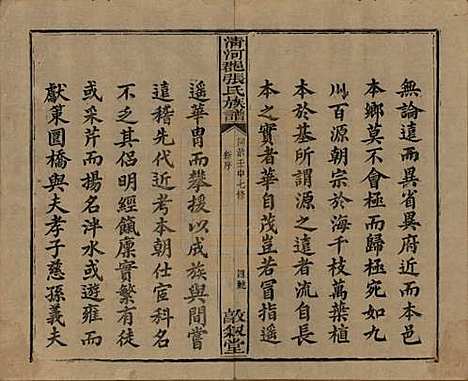 無論遠而異省異府近而本邑
本鄉莫不會極而歸極宛如九
川百源朝宗於海千枝萬葉植
於於基所謂源之遠者流自長
本之實者華自茂豈若冒指遙
清河郡張氏族譜
壬申七修
新序
敦敘堂
遥華胄而攀援以成族與間嘗
遠稽先代近考本朝仕宦科名
不乏其侶明經餼廩實繁有徒
或采芹而揚名泮水或遊雍而
獻策圜橋與夫孝子慈孫義夫